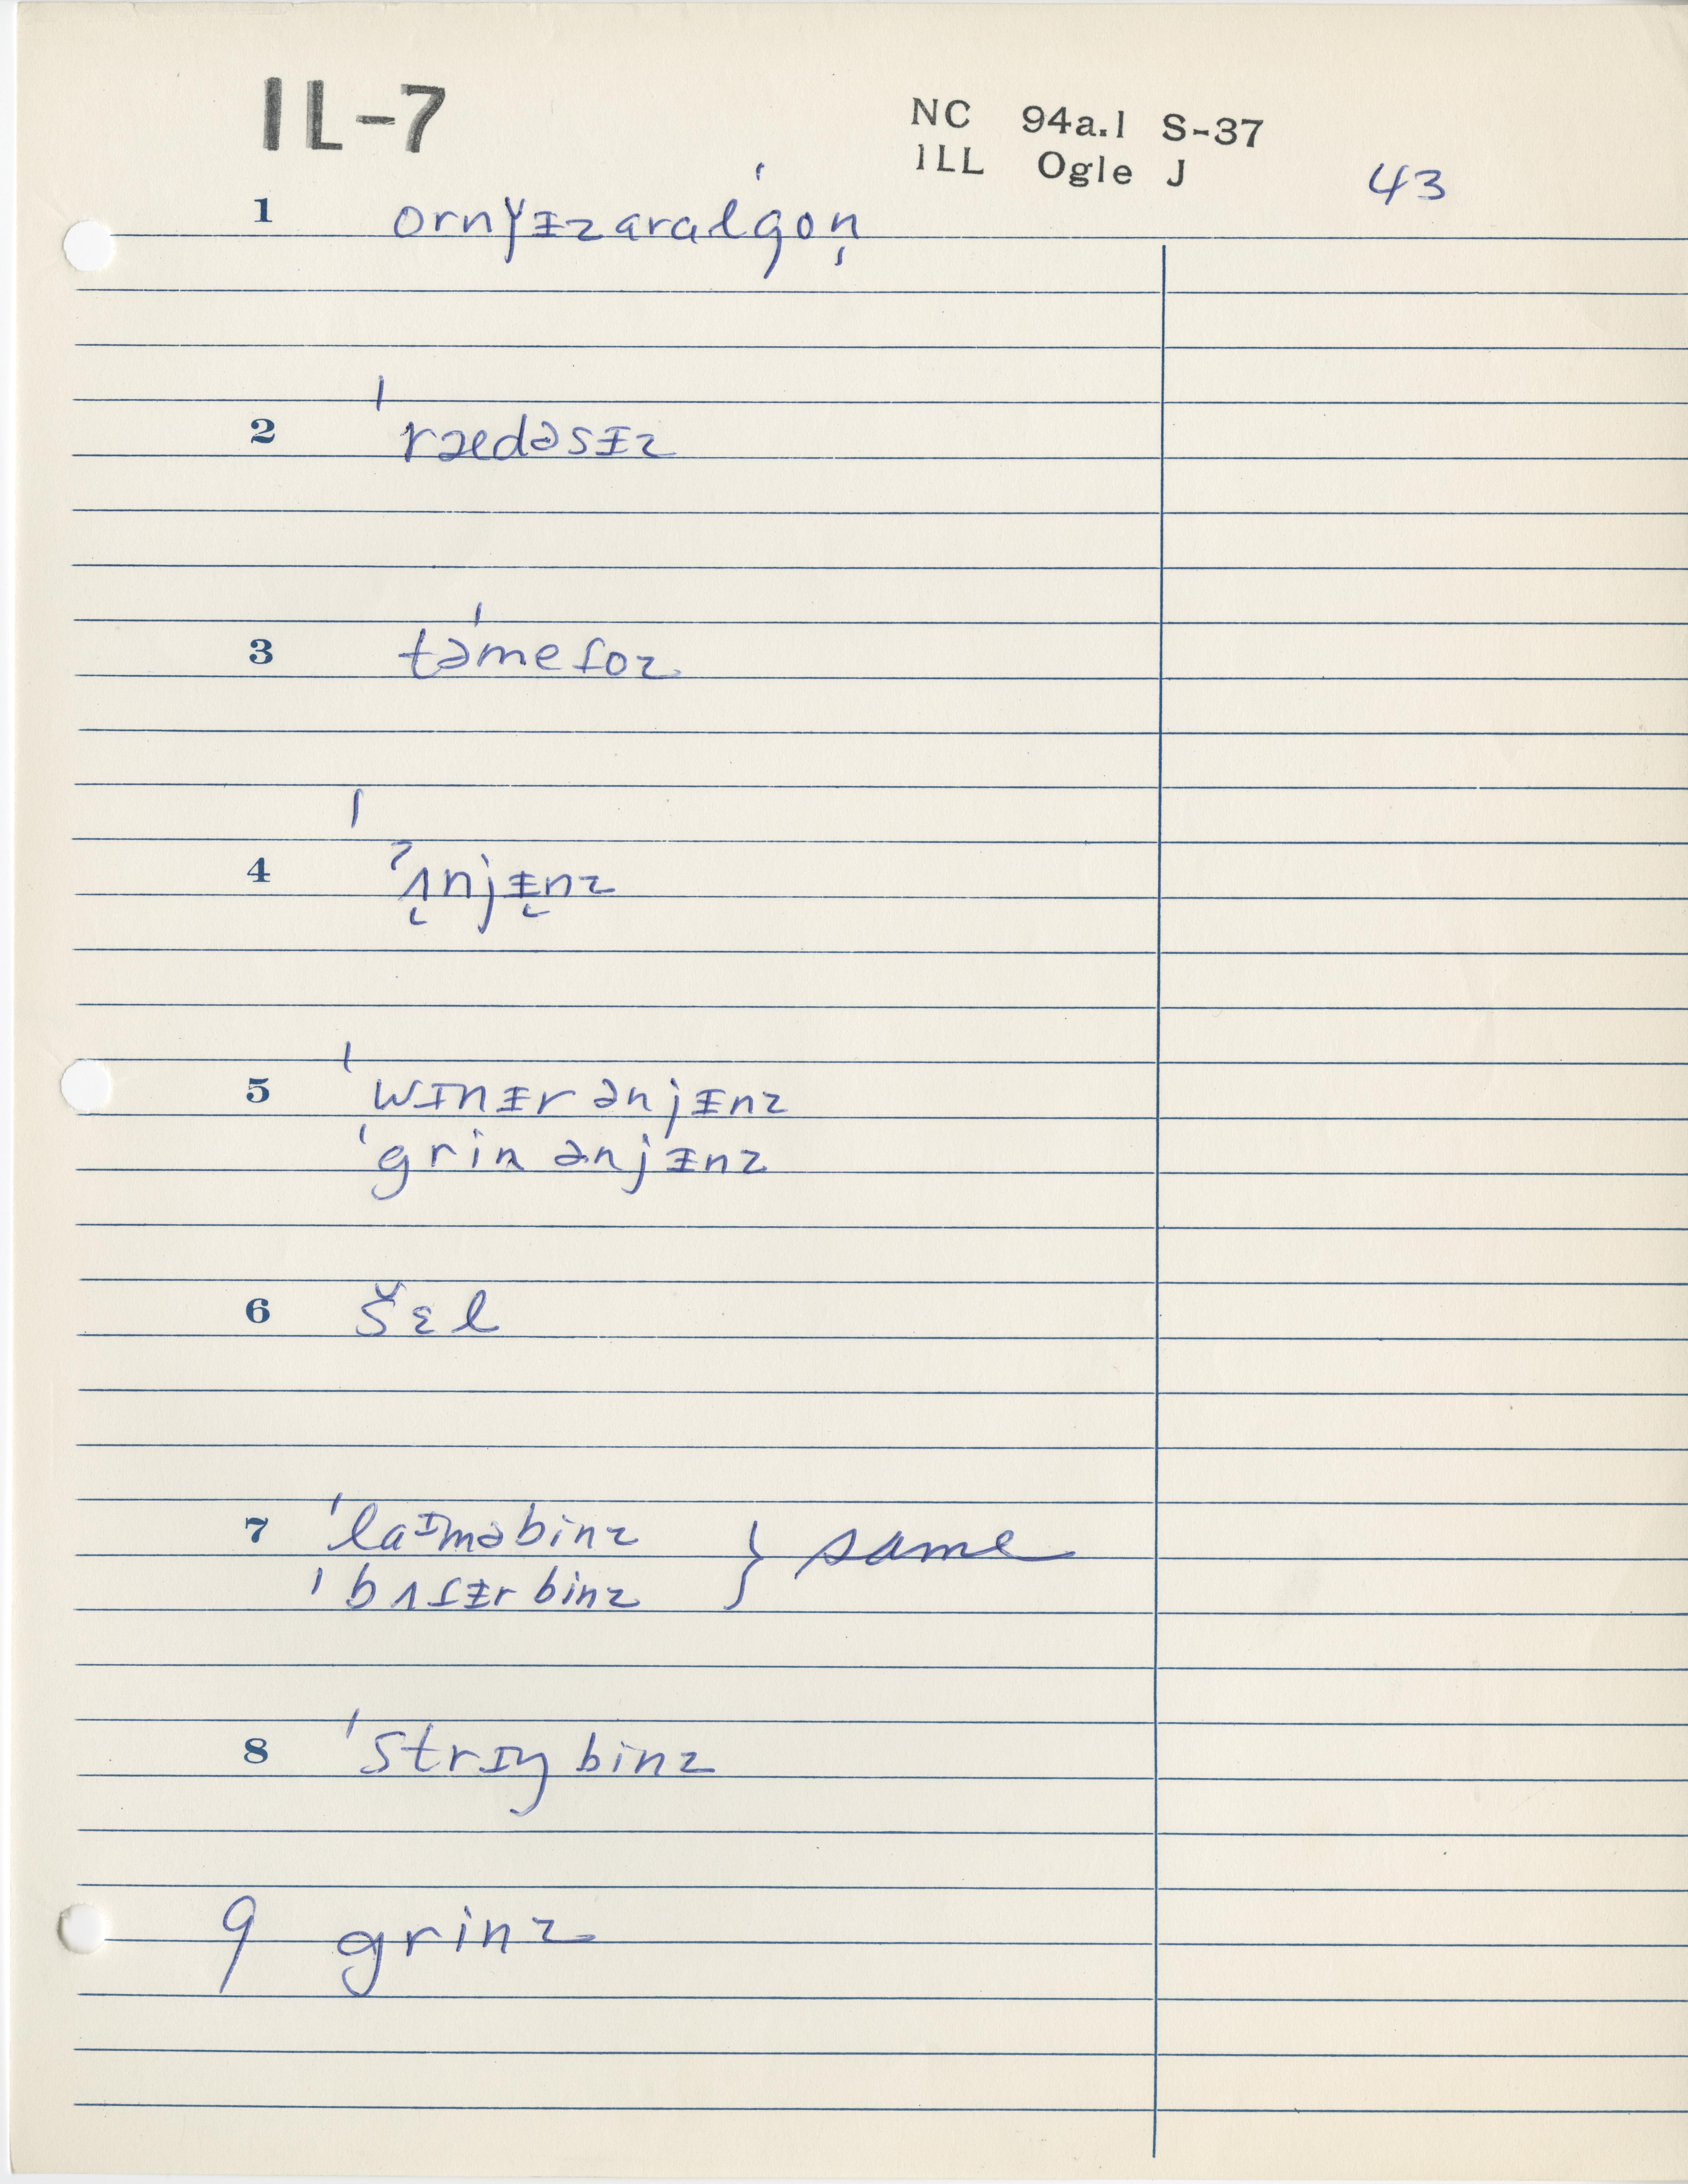 IL-7
NC 94a.1 S-37
ILL Ogle J
43
1 ornɣᵻzaralˈgon̩
2 ˈrædəsᵻz
3 təˈmeſoz
4 ˈʔʌnjᵻnz
5 ˈwɪnᵻr ənjᵻnz
ˈgrin ənjᵻnz
6 šɛl
7 ˈlaɪməbinz } same
ˈbʌſᵻrbinz
8 ˈstrɪŋ binz
9 grinz